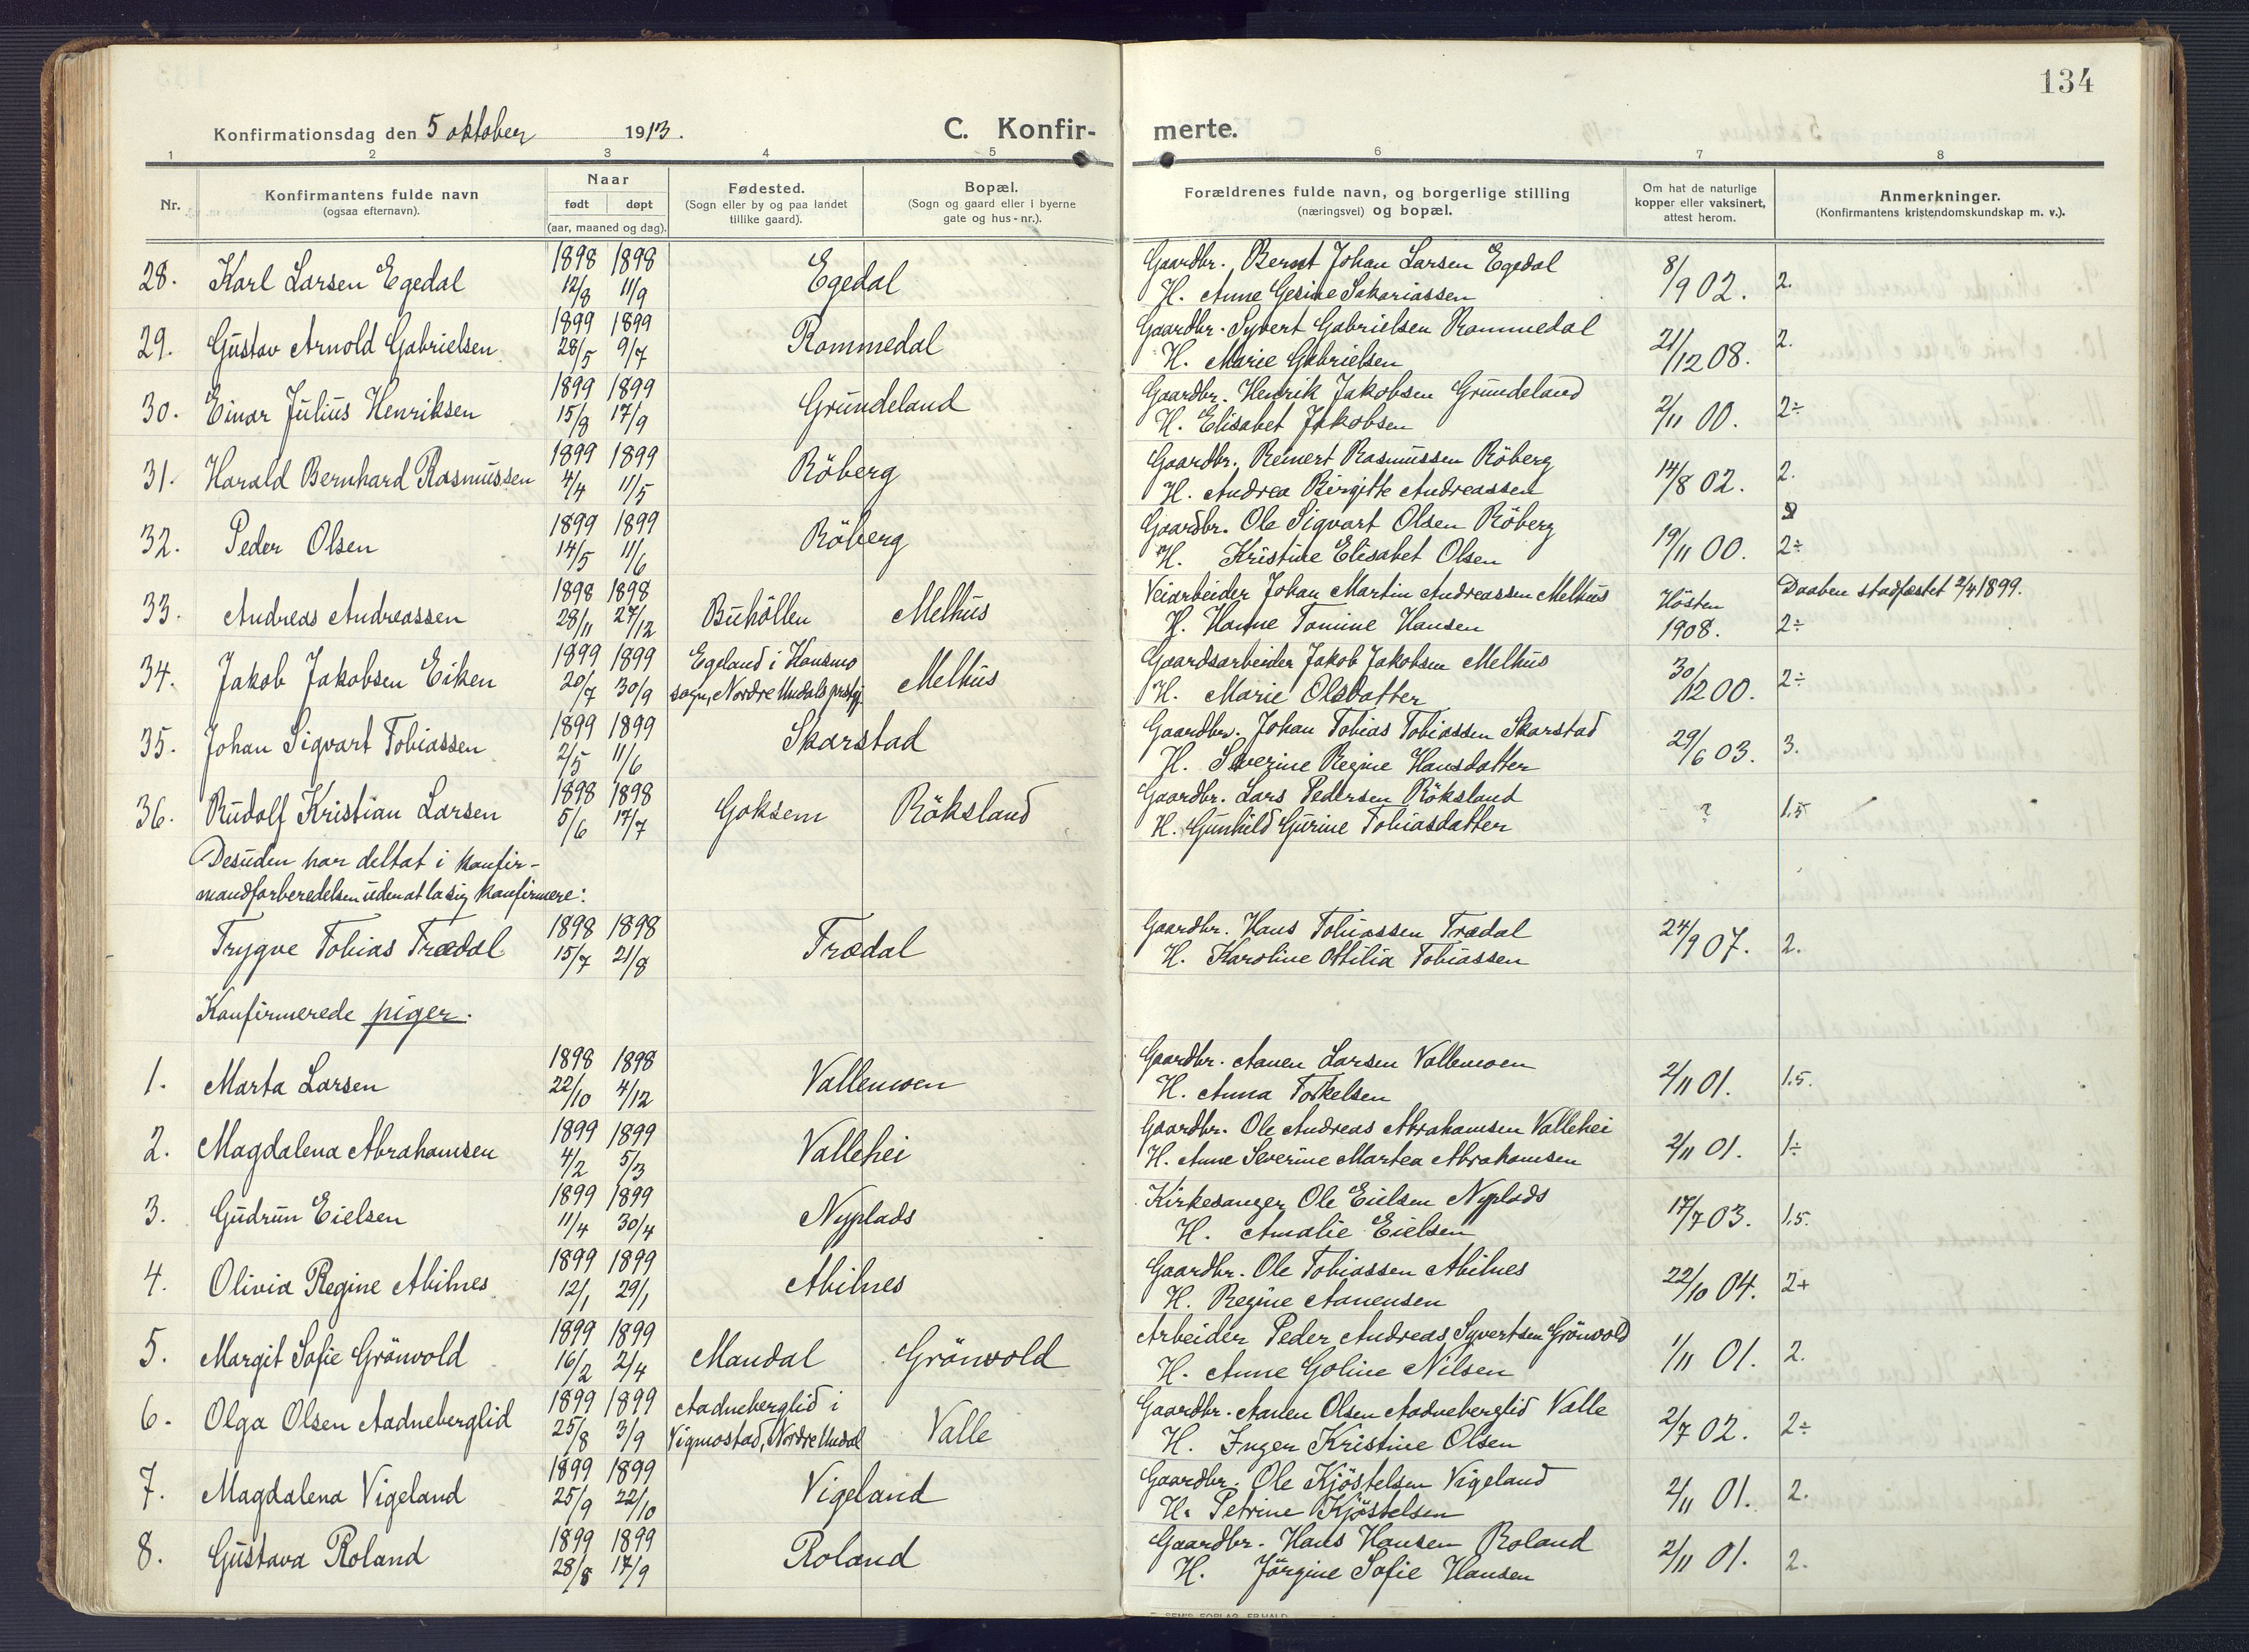 134
Konfirmationsdag den 5 oktober 1913.
C. Konfir- merte.
1 2 3 4 5 6 7 8
Nr.
Konfirmantens fulde navn
(ogsaa efternavn).
Naar
født døpt
(aar, maaned og dag).
Fødested.
(Sogn eller by og paa landet
tillike gaard).
Bopæl.
(Sogn og gaard eller i byerne
gate og hus-nr.).
Forældrenes fulde navn, og borgerlige stilling
(næringsvei) og bopæl.
Om hat de naturlige
kopper eller vaksinert,
attest herom.
Anmerkninger.
(Konfirmantens kristendomskundskap m. v.).
1898 1898 Gaardbr. Bernt Johan Larsen Egedal
28. Karl Larsen Egedal 12/8 11/9 Egedal H. Anne Gesine Sakariassen 8/9 02. 2.
1899 1899 Gaardbr. Syvert Gabrielsen Rommedal
29. Gustav Arnold Gabrielsen 28/5 9/7 Rommedal H. Marie Gabrielsen 21/12 08. 2.
1899 1899 Gaardbr. Henrik Jakobsen Grundeland
30. Einar Julius Henriksen 15/8 17/9 Grundeland H. Elisabet Jakobsen 2/11 00. 2÷
1899 1899 Gaardbr. Reinert Rasmussen Röberg
31. Harald Bernhard Rasmussen 4/4 11/5 Röberg H. Andrea Birgitte Andreassen 14/8 02. 2.
1899 1899 Gaardbr. Ole Sigvart Olsen Röberg
32. Peder Olsen 14/5 11/6 Röberg H. Kristine Elisabet Olsen 19/11 00. 2÷
1898 1898 Veiarbeider Johan Martin Andreassen Melhus Høsten Daaben stadfæstet 2/4 1899.
33. Andreas Andreassen 28/11 27/12 Buhöllen Melhus H. Hanne Tomine Hansen 1908. 2÷
1899 1899 Egeland i Konsmo Gaardsarbeider Jakob Jakobsen Melhus
34. Jakob Jakobsen Eiken 20/7 30/9 sogn, Nordre Undals prstgj. Melhus H. Marie Olsdatter 30/12 00. 2÷
1899 1899 Gaardbr. Johan Tobias Tobiassen Skarstad
35. Johan Sigvart Tobiassen 2/5 11/6 Skarstad H. Severine Regine Hansdatter 29/6 03. 3.
1898 1898 Gaardbr. Lars Pedersen Röksland
36. Rudolf Kristian Larsen 5/6 17/7 Goksem Röksland H. Gunhild Gurine Tobiasdatter ? 1.5
Desuden har deltat i konfir-
mandforberedelsen uden at la sig konfirmere:
1898 1898 Gaardbr. Hans Tobiassen Trædal
Trygve Tobias Trædal 15/7 21/8 Trædal H. Karoline Ottilia Tobiassen 24/9 07. 2.
Konfirmerede piger.
1898 1898 Gaardbr. Aanen Larsen Vallemoen
1. Marta Larsen 22/10 4/12 Vallemoen H. Anna Torkelsen 2/11 01. 1.5.
1899 1899 Gaardbr. Ole Andreas Abrahamsen Vallehei
2. Magdalena Abrahamsen 4/2 5/3 Vallehei H. Anne Severine Martea Abrahamsen 2/11 01. 1÷
1899 1899 Kirkesanger Ole Eielsen Nyplads
3. Gudrun Eielsen 11/4 30/4 Nyplads H. Amalie Eielsen 17/7 03. 1.5.
1899 1899 Gaardbr. Ole Tobiassen Abilnes
4. Olivia Regine Abilnes 12/1 29/1 Abilnes H. Regine Aanensen 22/10 04. 2+
1899 1899 Arbeider Peder Andreas Syvertsen Grönvold
5. Margit Sofie Grönvold 16/2 2/4 Mandal Grönvold H. Anne Goline Nilsen 1/11 01. 2.
1899 1899 Aadneberglid i Gaardbr. Aanen Olsen Aadneberglid Valle
6. Olga Olsen Aadneberglid 25/8 3/9 Vigmostad, Nordre Undal Valle H. Inger Kristine Olsen 2/7 02. 2÷
1899 1899 Gaardbr. Ole Kjöstelsen Vigeland
7. Magdalena Vigeland 25/9 22/10 Vigeland H. Petrine Kjöstelsen 2/11 01. 2.
1899 1899 Gaardbr. Hans Hansen Roland
8. Gustava Roland 28/8 17/9 Roland H. Jörgine Sofie Hansen 2/11 01. 2.